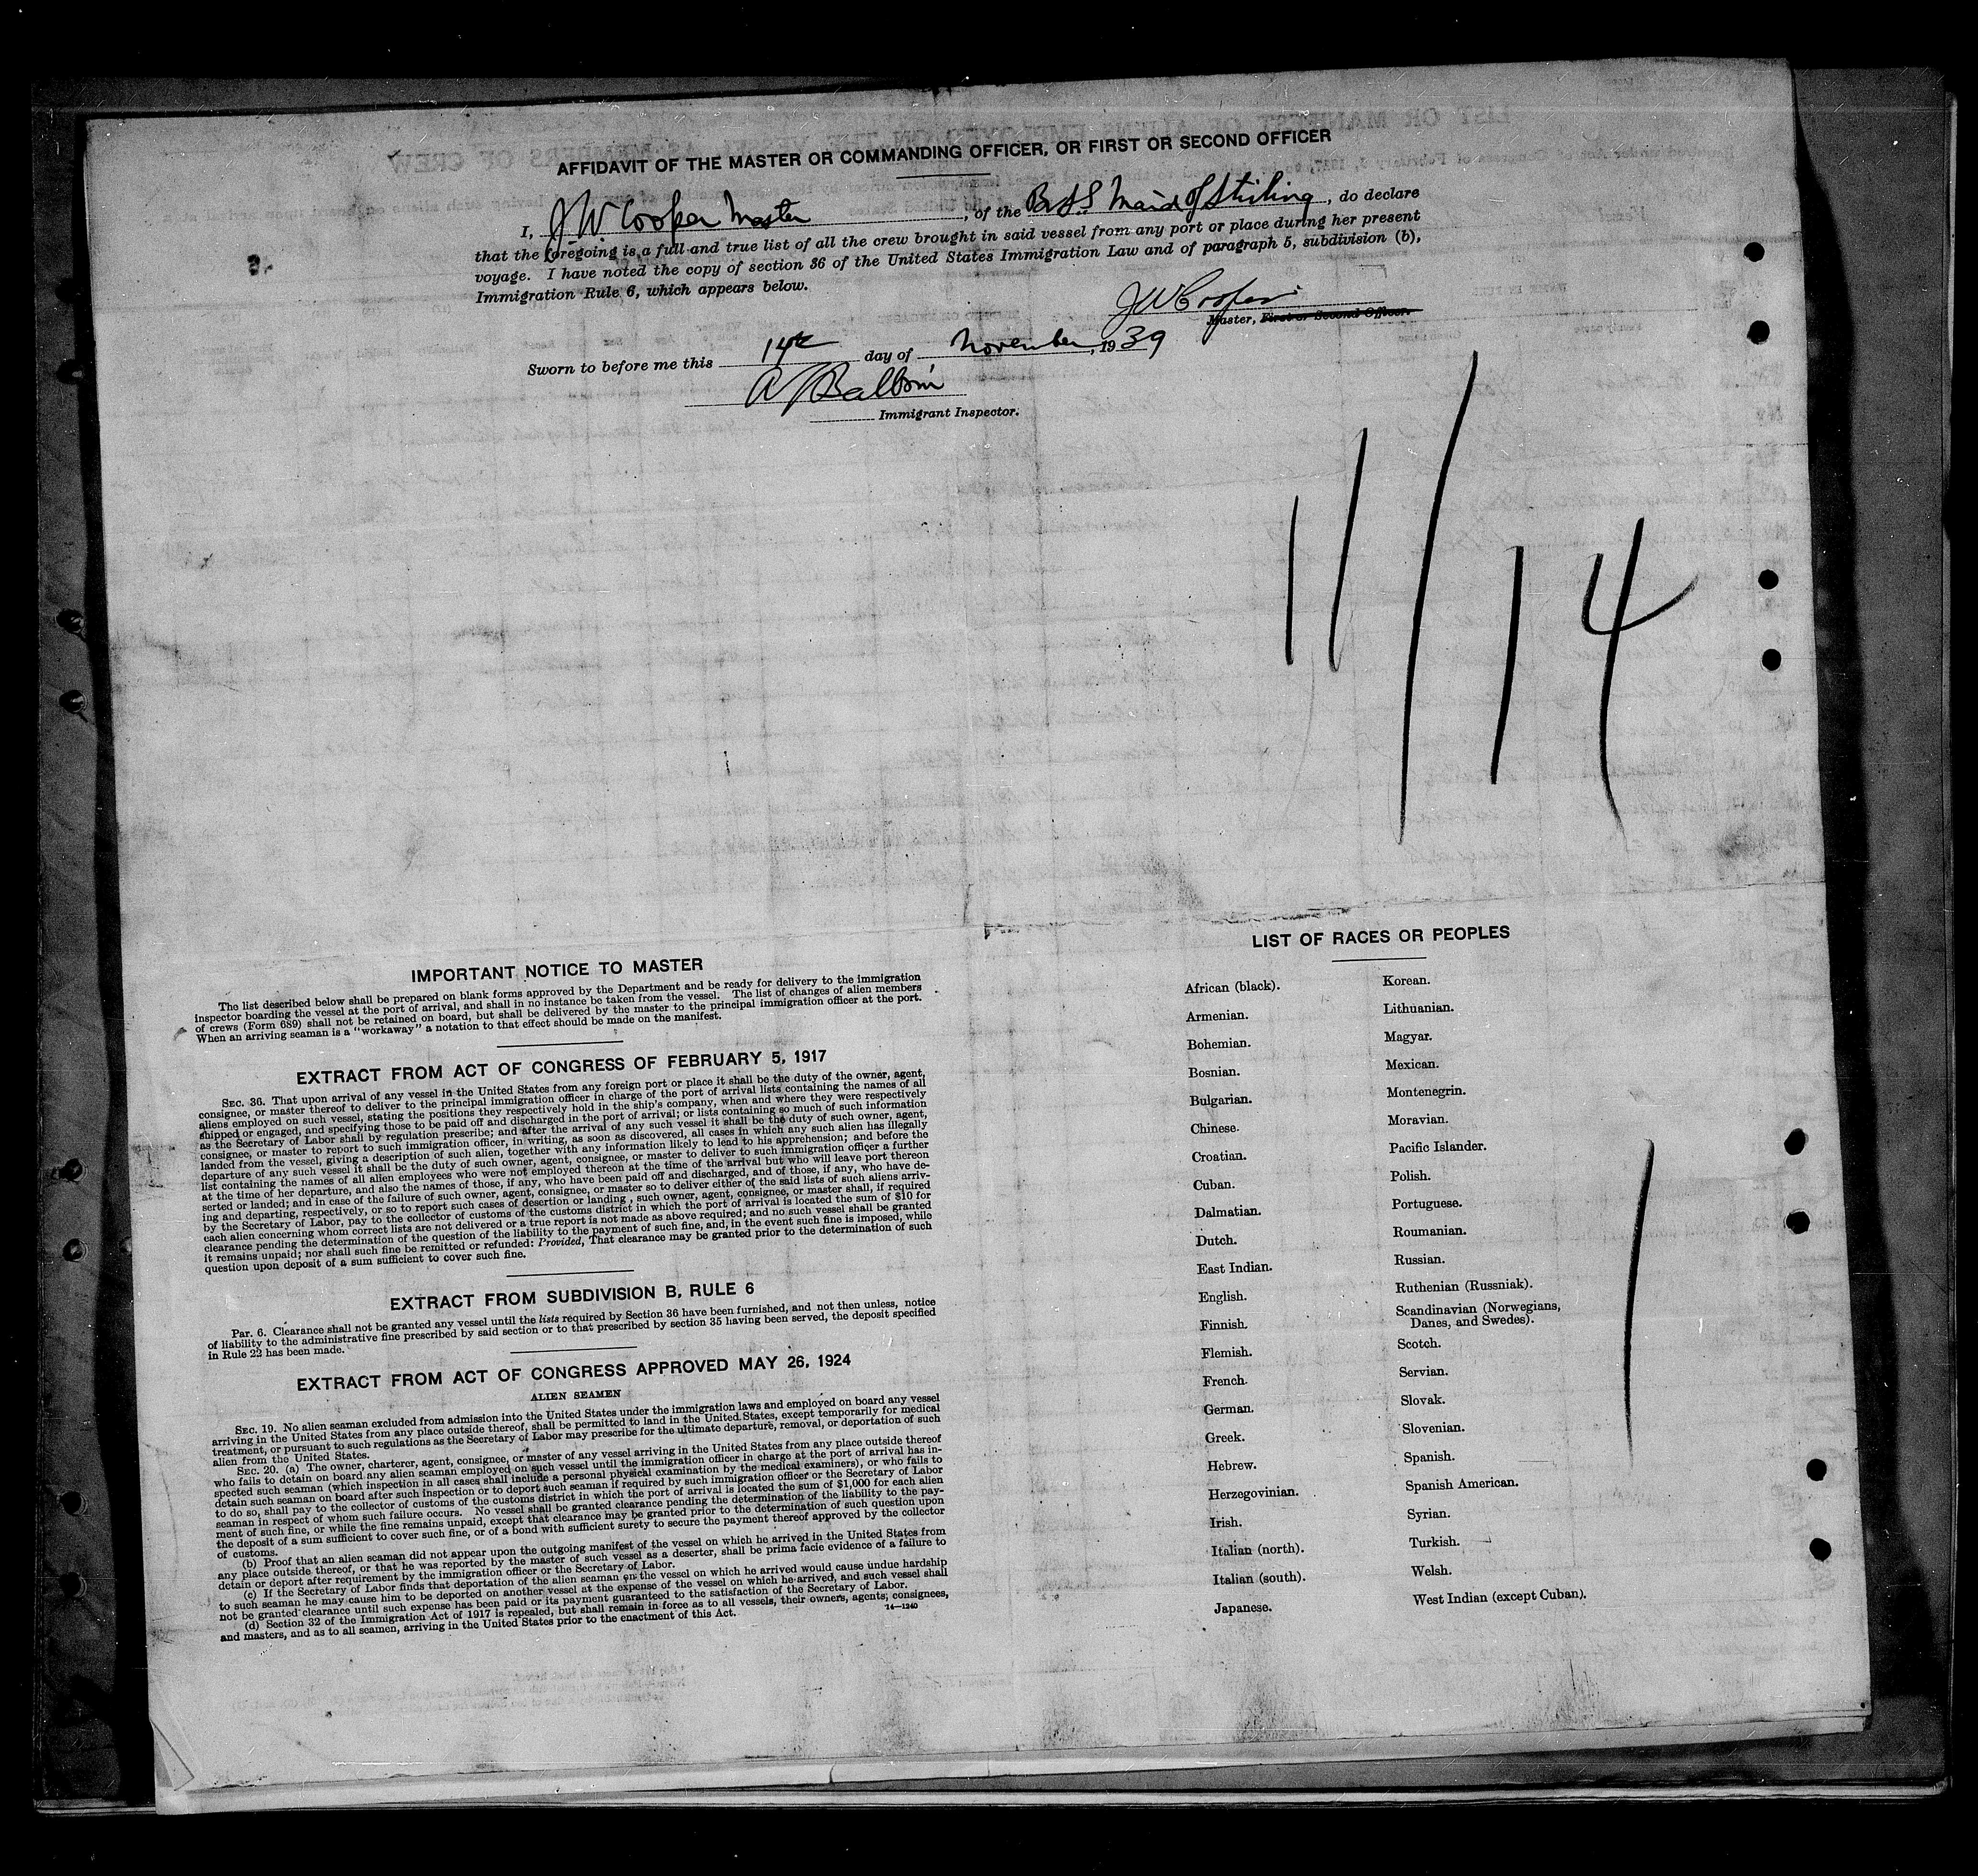 AFFIDAVIT OF THE MASTER OR COMMANDING OFFICER, OR FIRST OR SECOND OFFICER
I, J W Cooper Master, of the Br SS Maid of Stirling, do declare
that the foregoing is a full and true list of all the crew brought in said vessel from any port or place during her present
voyage. I have noted the copy of section 36 of the United States Immigration Law and of paragraph 5, subdivision (b),
Immigration Rule 6, which appears below.
J W Cooper
Master, First or Second Officer.
Sworn to before me this 14th day of November, 1939
Immigrant Inspector.
11/14
IMPORTANT NOTICE TO MASTER
The list described below shall be prepared on blank forms approved by the Department and be ready for delivery to the immigration
inspector boarding the vessel at the port of arrival, and shall in no instance be taken from the vessel. The list of changes of alien members
of crews (Form 689) shall not be retained on board, but shall be delivered by the master to the principal immigration officer at the port.
When an arriving seaman is a "workaway" a notation to that effect should be made on the manifest.
EXTRACT FROM ACT OF CONGRESS OF FEBRUARY 5, 1917
SEC. 36. That upon arrival of any vessel in the United States from any foreign port or place it shall be the duty of the owner, agent,
consignee, or master thereof to deliver to the principal immigration officer in charge of the port of arrival lists containing the names of all
aliens employed on such vessel, stating the positions they respectively hold in the ship's company, when and where they were respectively
shipped or engaged, and specifying those to be paid off and discharged in the port of arrival; or lists containing so much of such information
as the Secretary of Labor shall by regulation prescribe; and after the arrival of any such vessel it shall be the duty of such owner, agent,
consignee, or master to report to such immigration officer, in writing, as soon as discovered, all cases in which any such alien has illegally
landed from the vessel, giving a description of such alien, together with any information likely to lead to his apprehension; and before the
departure of any such vessel it shall be the duty of such owner, agent, consignee, or master to deliver to such immigration officer a further
list containing the names of all alien employees who were not employed thereon at the time of the arrival but who will leave port thereon
at the time of her departure, and also the names of those, if any, who have been paid off and discharged, and of those, if any, who have de-
serted or landed; and in case of the failure of such owner, agent, consignee, or master so to deliver either of the said lists of such aliens arriv-
ing and departing, respectively, or so to report such cases of desertion or landing, such owner, agent, consignee, or master shall, if required
by the Secretary of Labor, pay to the collector of customs of the customs district in which the port of arrival is located the sum of $10 for
each alien concerning whom correct lists are not delivered or a true report is not made as above required; and no such vessel shall be granted
clearance pending the determination of the question of the liability to the payment of such fine, and, in the event such fine is imposed, while
it remains unpaid; nor shall such fine be remitted or refunded: Provided, That clearance may be granted prior to the determination of such
question upon deposit of a sum sufficient to cover such fine.
EXTRACT FROM SUBDIVISION B, RULE 6
Par. 6. Clearance shall not be granted any vessel until the lists required by Section 36 have been furnished, and not then unless, notice
of liability to the administrative fine prescribed by said section or to that prescribed by section 35 having been served, the deposit specified
in Rule 22 has been made.
EXTRACT FROM ACT OF CONGRESS APPROVED MAY 26, 1924
ALIEN SEAMEN
SEC. 19. No alien seaman excluded from admission into the United States under the immigration laws and employed on board any vessel
arriving in the United States from any place outside thereof, shall be permitted to land in the United States, except temporarily for medical
treatment, or pursuant to such regulations as the Secretary of Labor may prescribe for the ultimate departure, removal, or deportation of such
alien from the United States.
SEC. 20. (a) The owner, charterer, agent, consignee, or master of any vessel arriving in the United States from any place outside thereof
who fails to detain on board any alien seaman employed on such vessel until the immigration officer in charge at the port of arrival has in-
spected such seaman (which inspection in all cases shall include a personal physical examination by the medical examiners), or who fails to
detain such seaman on board after such inspection or to deport such seaman if required by such immigration officer or the Secretary of Labor
to do so, shall pay to the collector of customs of the customs district in which the port of arrival is located the sum of $1,000 for each alien
seaman in respect of whom such failure occurs. No vessel shall be granted clearance pending the determination of the liability to the pay-
ment of such fine, or while the fine remains unpaid, except that clearance may be granted prior to the determination of such question upon
the deposit of a sum sufficient to cover such fine, or of a bond with sufficient surety to secure the payment thereof approved by the collector
of customs.
(b) Proof that an alien seaman did not appear upon the outgoing manifest of the vessel on which he arrived in the United States from
any place outside thereof, or that he was reported by the master of such vessel as a deserter, shall be prima facie evidence of a failure to
detain or deport after requirement by the immigration officer or the Secretary of Labor.
(c) If the Secretary of Labor finds that deportation of the alien seaman on the vessel on which he arrived would cause undue hardship
to such seaman he may cause him to be deported on another vessel at the expense of the vessel on which he arrived, and such vessel shall
not be granted clearance until such expense has been paid or its payment guaranteed to the satisfaction of the Secretary of Labor.
(d) Section 32 of the Immigration Act of 1917 is repealed, but shall remain in force as to all vessels, their owners, agents, consignees,
and masters, and as to all seamen, arriving in the United States prior to the enactment of this Act.
14—1240
LIST OF RACES OR PEOPLES
African (black).
Armenian.
Bohemian.
Bosnian.
Bulgarian.
Chinese.
Croatian.
Cuban.
Dalmatian.
Dutch.
East Indian.
English.
Finnish.
Flemish.
French.
German.
Greek.
Hebrew.
Herzegovinian.
Irish.
Italian (north).
Italian (south).
Japanese.
Korean.
Lithuanian.
Magyar.
Mexican.
Montenegrin.
Moravian.
Pacific Islander.
Polish.
Portuguese.
Roumanian.
Russian.
Ruthenian (Russniak).
Scandinavian (Norwegians,
Danes, and Swedes).
Scotch.
Servian.
Slovak.
Slovenian.
Spanish.
Spanish American.
Syrian.
Turkish.
Welsh.
West Indian (except Cuban).